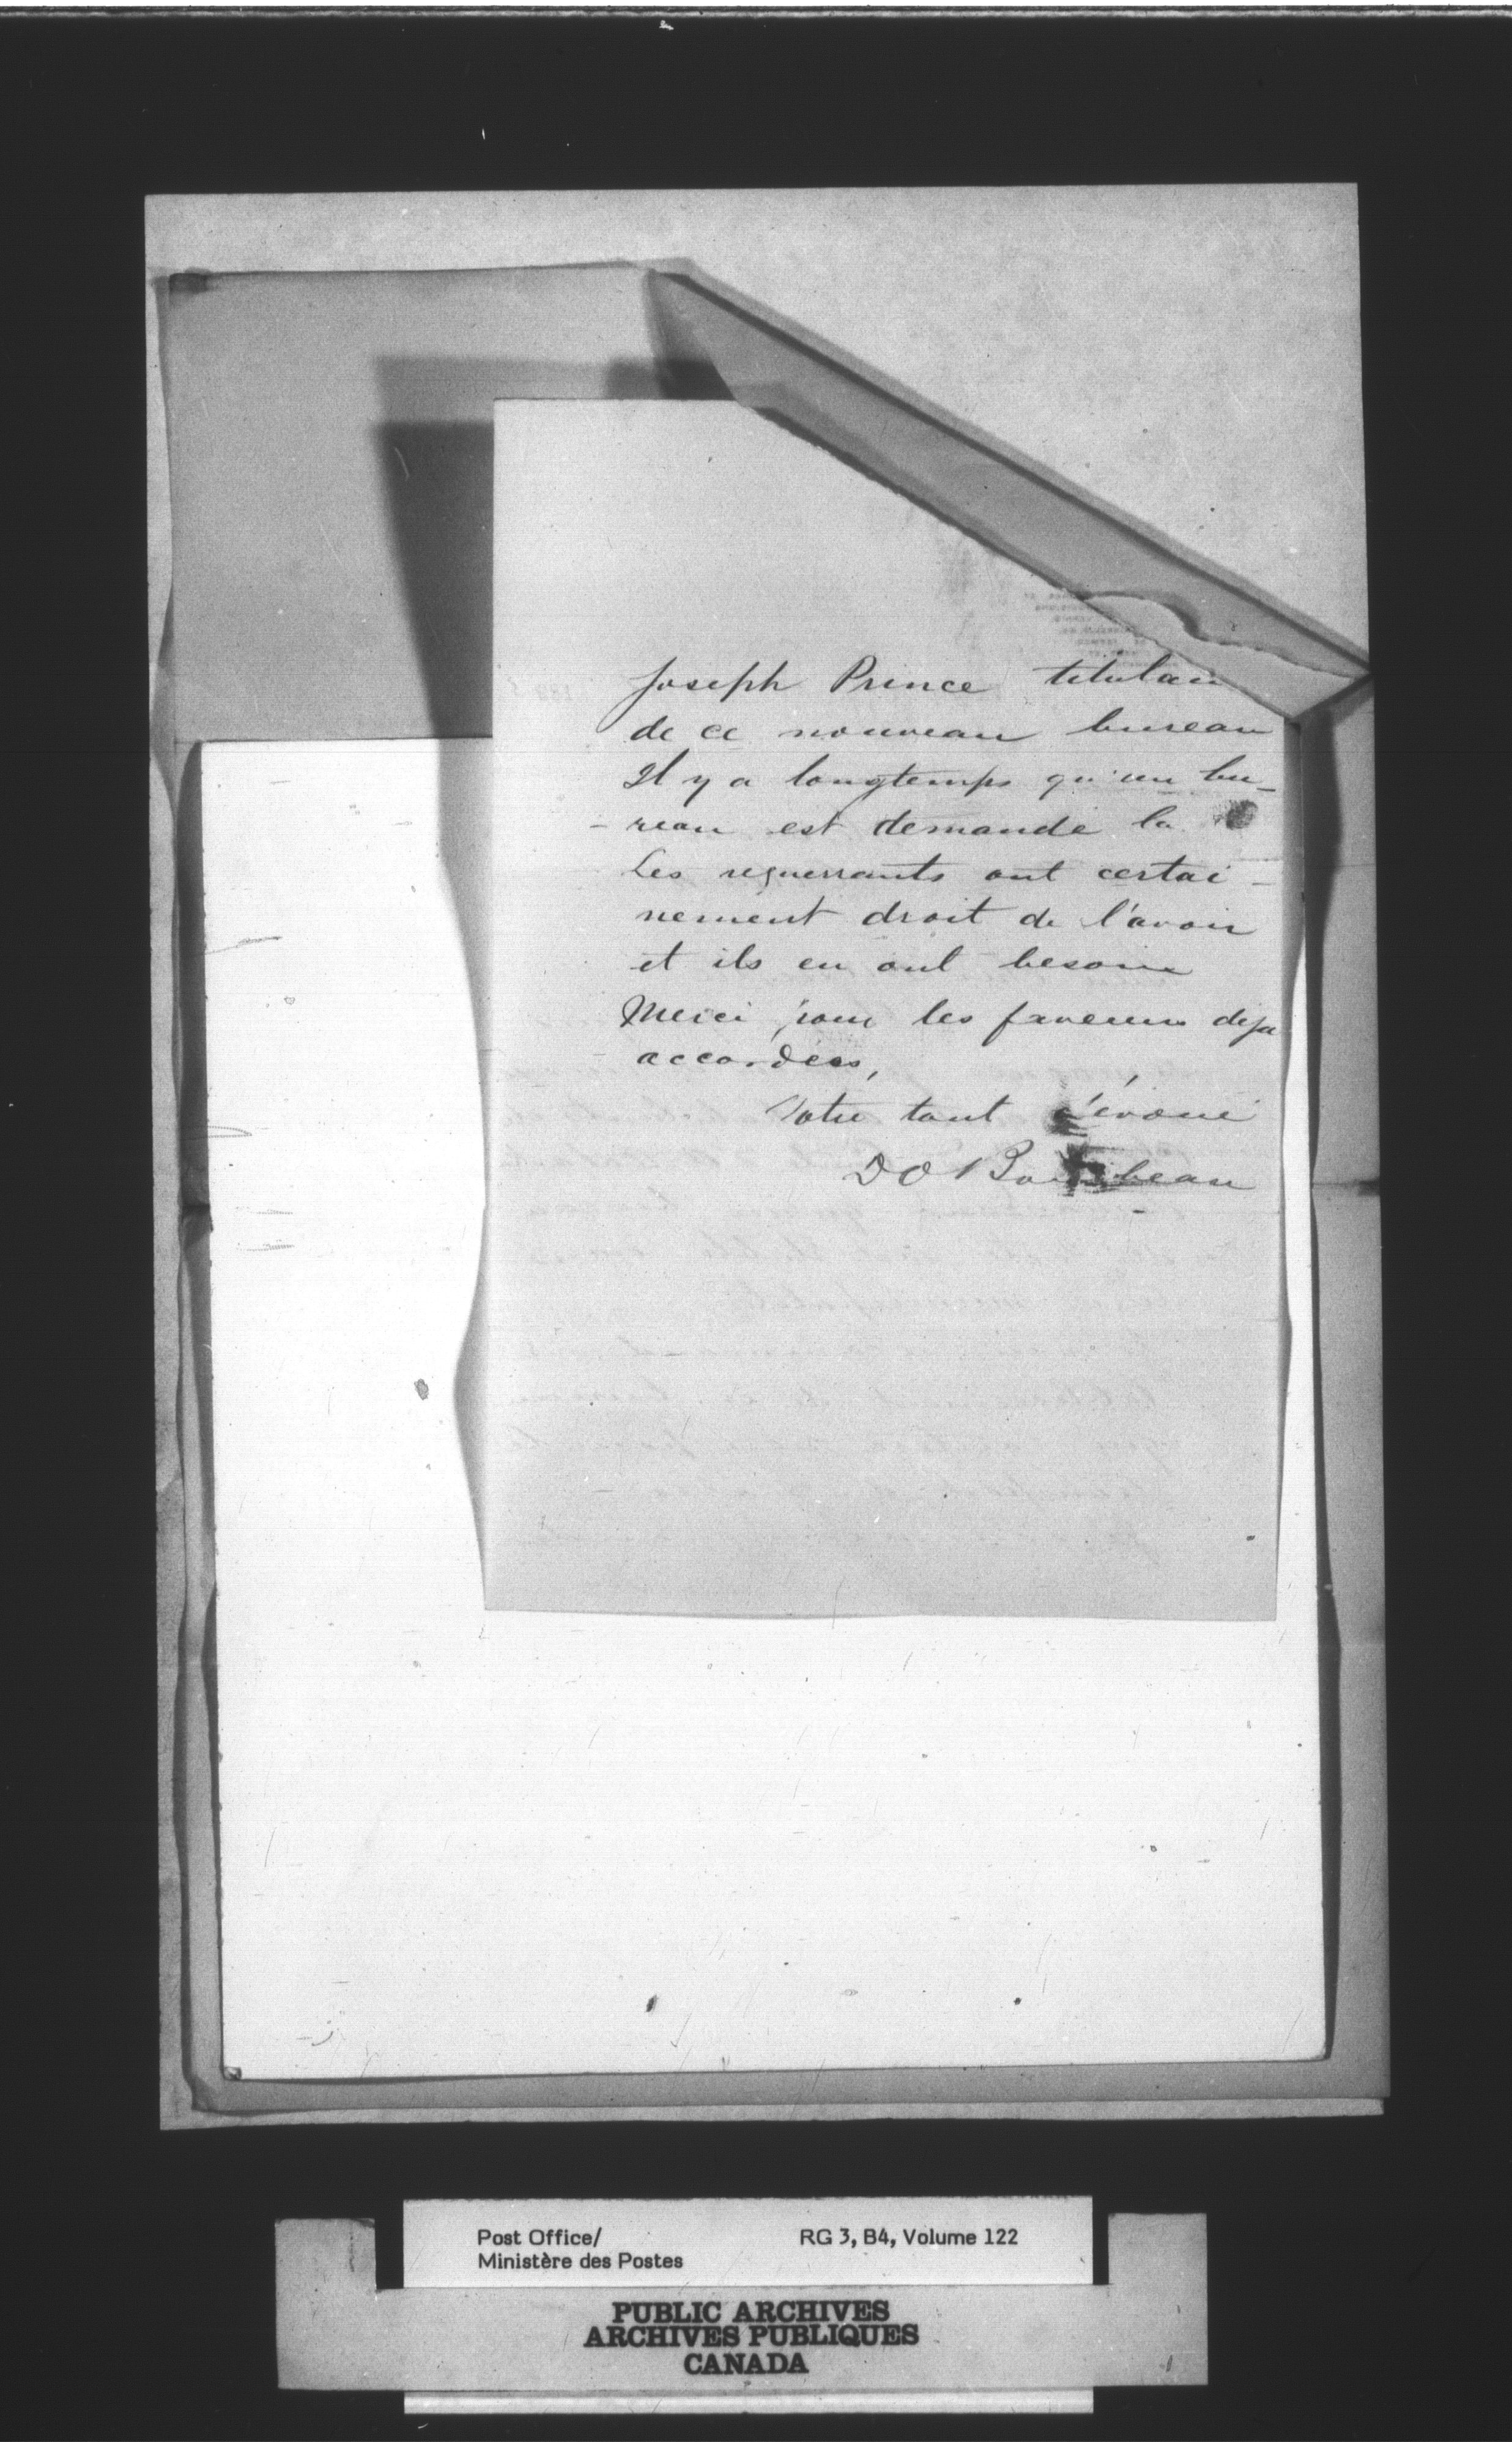 Joseph Prince titulaire
de ce nouveau bureau
Il y a longtemps qu'un bu-
-reau est demandé la
Les requerrants ont certai-
nement droit de l'avoir
et ils en ont besoin
Merci pour les faveurs deja
accordées,
Votre tout dévoué
DO Bourbeau
Post Office/
Ministère des Postes
RG 3, B4, Volume 122
PUBLIC ARCHIVES
ARCHIVES PUBLIQUES
CANADA